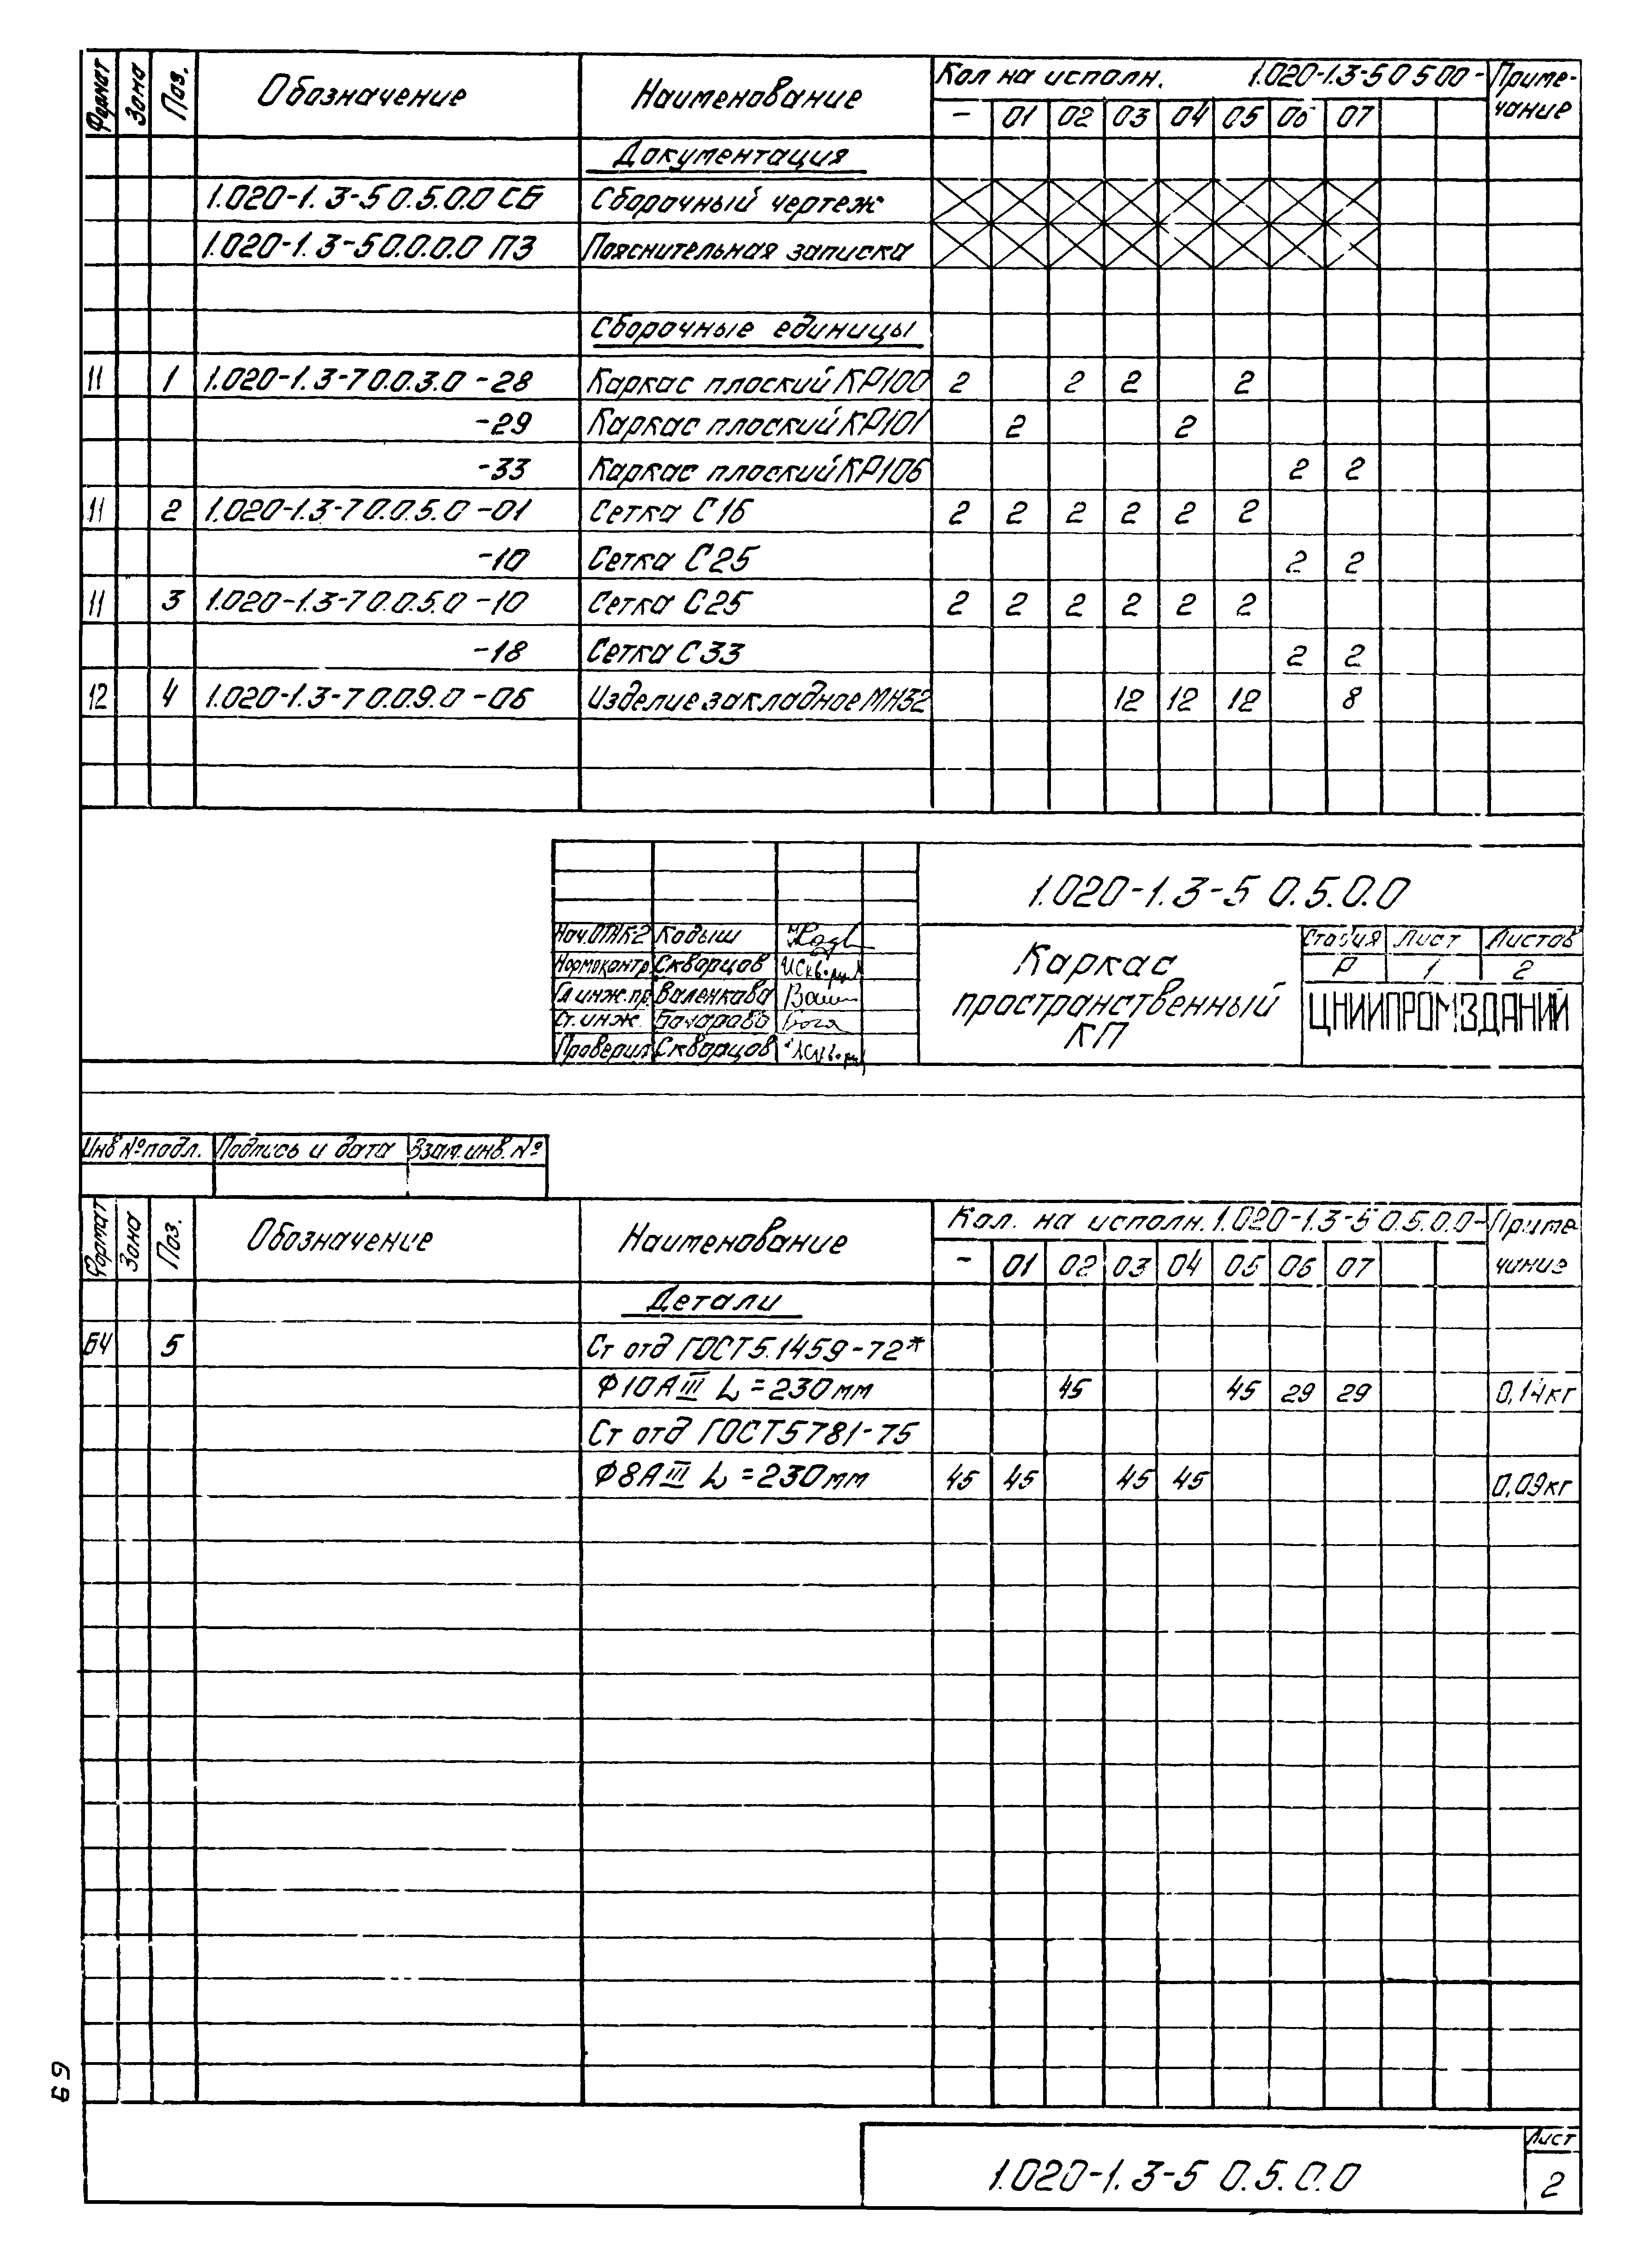 Формат Зона Поз. Обозначение Наименование Кол на исполн. 1.020-1.3-5 0 5 0 0 - Приме-чание
- 01 02 03 04 05 06 07
Документация
1.020-1.3-5 0.5.0.0 СБ Сборочный чертеж
1.020-1.3-5 0.0.0.0 ПЗ Пояснительная записка
Сборочные единицы
11 1 1.020-1.3-7 0.0.3.0 -28 Каркас плоский КР100 2 2 2 2
-29 Каркас плоский КР101 2 2
-33 Каркас плоский КР106 2 2
11 2 1.020-1.3-7 0.0.5.0 -01 Сетка С16 2 2 2 2 2 2
-10 Сетка С25 2 2
11 3 1.020-1.3-7 0.0.5.0 -10 Сетка С25 2 2 2 2 2 2
-18 Сетка С33 2 2
12 4 1.020-1.3-7 0.0.9.0 -06 Изделие закладное МН32 12 12 12 8
1.020-1.3-5 0.5.0.0
Нач.ОТК-2 Кодыш
Нормоконтр. Скворцов
Гл инж.пр. Валенкова
Ст. инж. Бочарова
Проверил Скворцов
Каркас
пространственный
КП
Стадия Лист Листов
Р 1 2
ЦНИИПРОМЗДАНИЙ
Инв № подл. Подпись и дата Взам. инв. №
Формат Зона Поз. Обозначение Наименование Кол. на исполн. 1.020-1.3-5 0.5.0.0- Приме
чание
- 01 02 03 04 05 06 07
Детали
БЧ 5 Ст отд ГОСТ 5.1459-72*
Ф10АIII L=230мм 45 45 29 29 0,14кг
Ст отд ГОСТ5781-75
Ф8АIII L=230мм 45 45 45 45 0,09кг
69
1.020-1.3-5 0.5.0.0
Лист
2